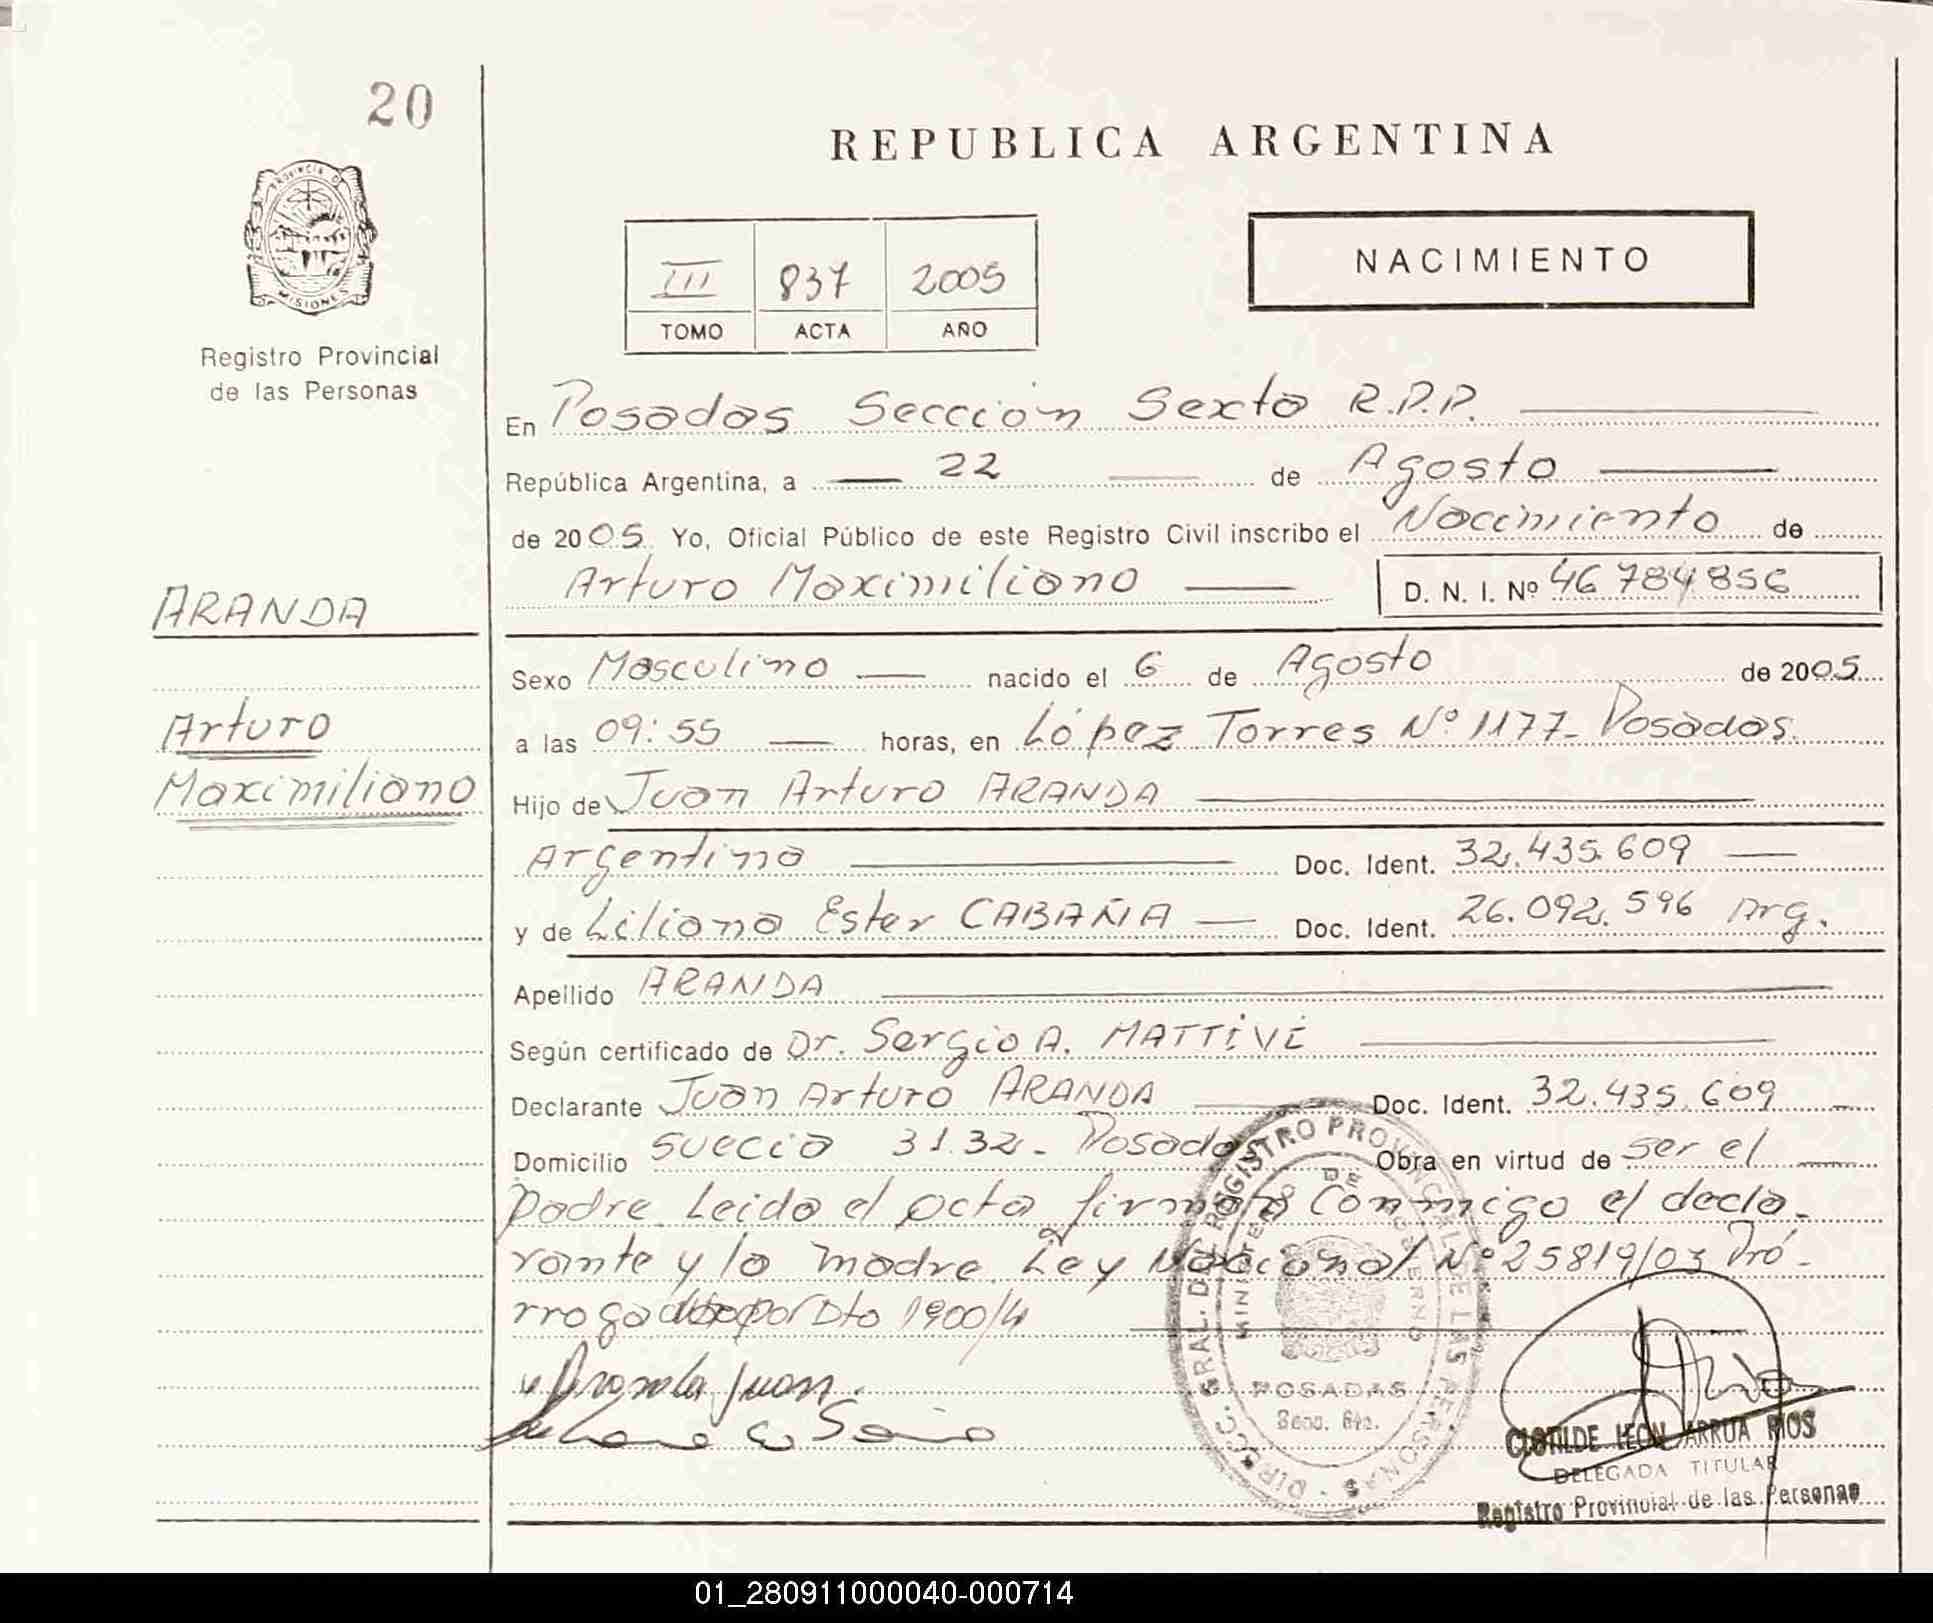 20
REPUBLICA ARGENTINA
PROVINCIA DE
MISIONES
Registro Provincial
de las Personas
III 837 2005
TOMO ACTA AÑO
NACIMIENTO
En Posadas Sección Sexta R.P.P.
República Argentina, a 22 de Agosto
de 2005 Yo, Oficial Público de este Registro Civil inscribo el Nacimiento de
Arturo Maximiliano D. N. I. Nº 46 784 856
ARANDA
Arturo
Maximiliano
Sexo Masculino nacido el 6 de Agosto de 2005
a las 09:55 horas, en López Torres Nº 1177- Posadas.
Hijo de Juan Arturo ARANDA
Argentino Doc. Ident. 32.435.609
y de Liliana Ester CABAÑA Doc. Ident. 26.092.596 Arg.
Apellido ARANDA
Según certificado de Dr. Sergio A. MATTIVE
Declarante Juan Arturo ARANDA Doc. Ident. 32.435.609
Domicilio Suecia 3132- Posadas Obra en virtud de ser el
padre. Leida el acta firmata conmigo el decla-
rante y la madre. Ley Nacional Nº 25819/03 Pró-
rrogada por Dto 1900/4
Aranda Juan.
DIRECC. GRAL. DEL REGISTRO PROVINCIAL DE LAS PERSONAS
MINISTERIO DE GOBIERNO
POSADAS
Secc. 6ta.
CLOTILDE LEON ARRUA RIOS
DELEGADA TITULAR
Registro Provincial de las Personas
01_280911000040-000714